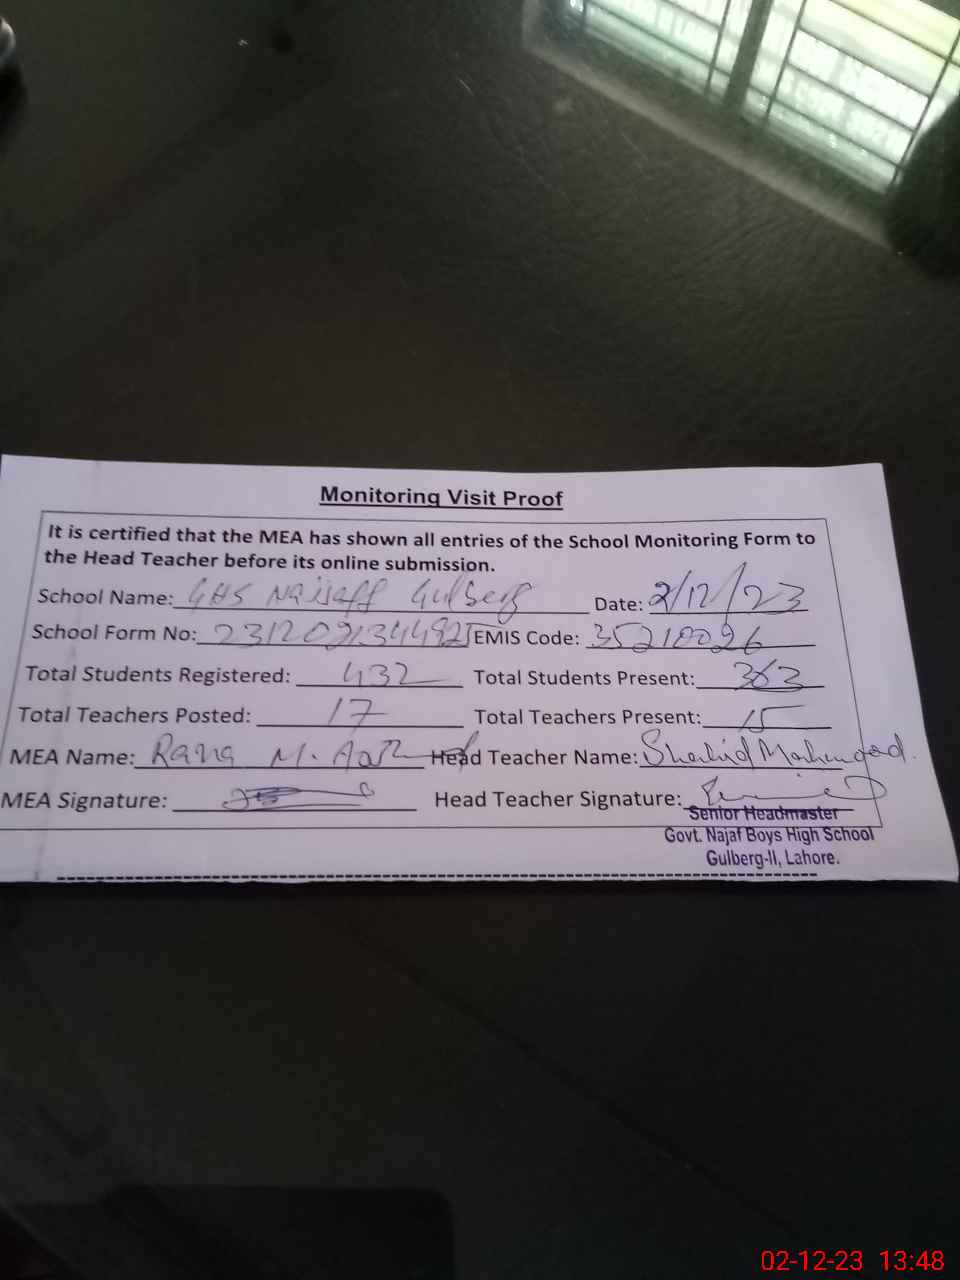 Monitoring Visit Proof
It is certified that the MEA has shown all entries of the School Monitoring Form to
the Head Teacher before its online submission.
School Name: GHS Najaff Gulberg Date: 2/12/23
School Form No: EMIS Code: 35210026
Total Students Registered: 432 Total Students Present: 363
Total Teachers Posted: 17 Total Teachers Present: 15
MEA Name: Rana M. Head Teacher Name: Shahid Mahmood.
MEA Signature: Head Teacher Signature:
Senior Headmaster
Govt. Najaf Boys High School
Gulberg-II, Lahore.
02-12-23 13:48